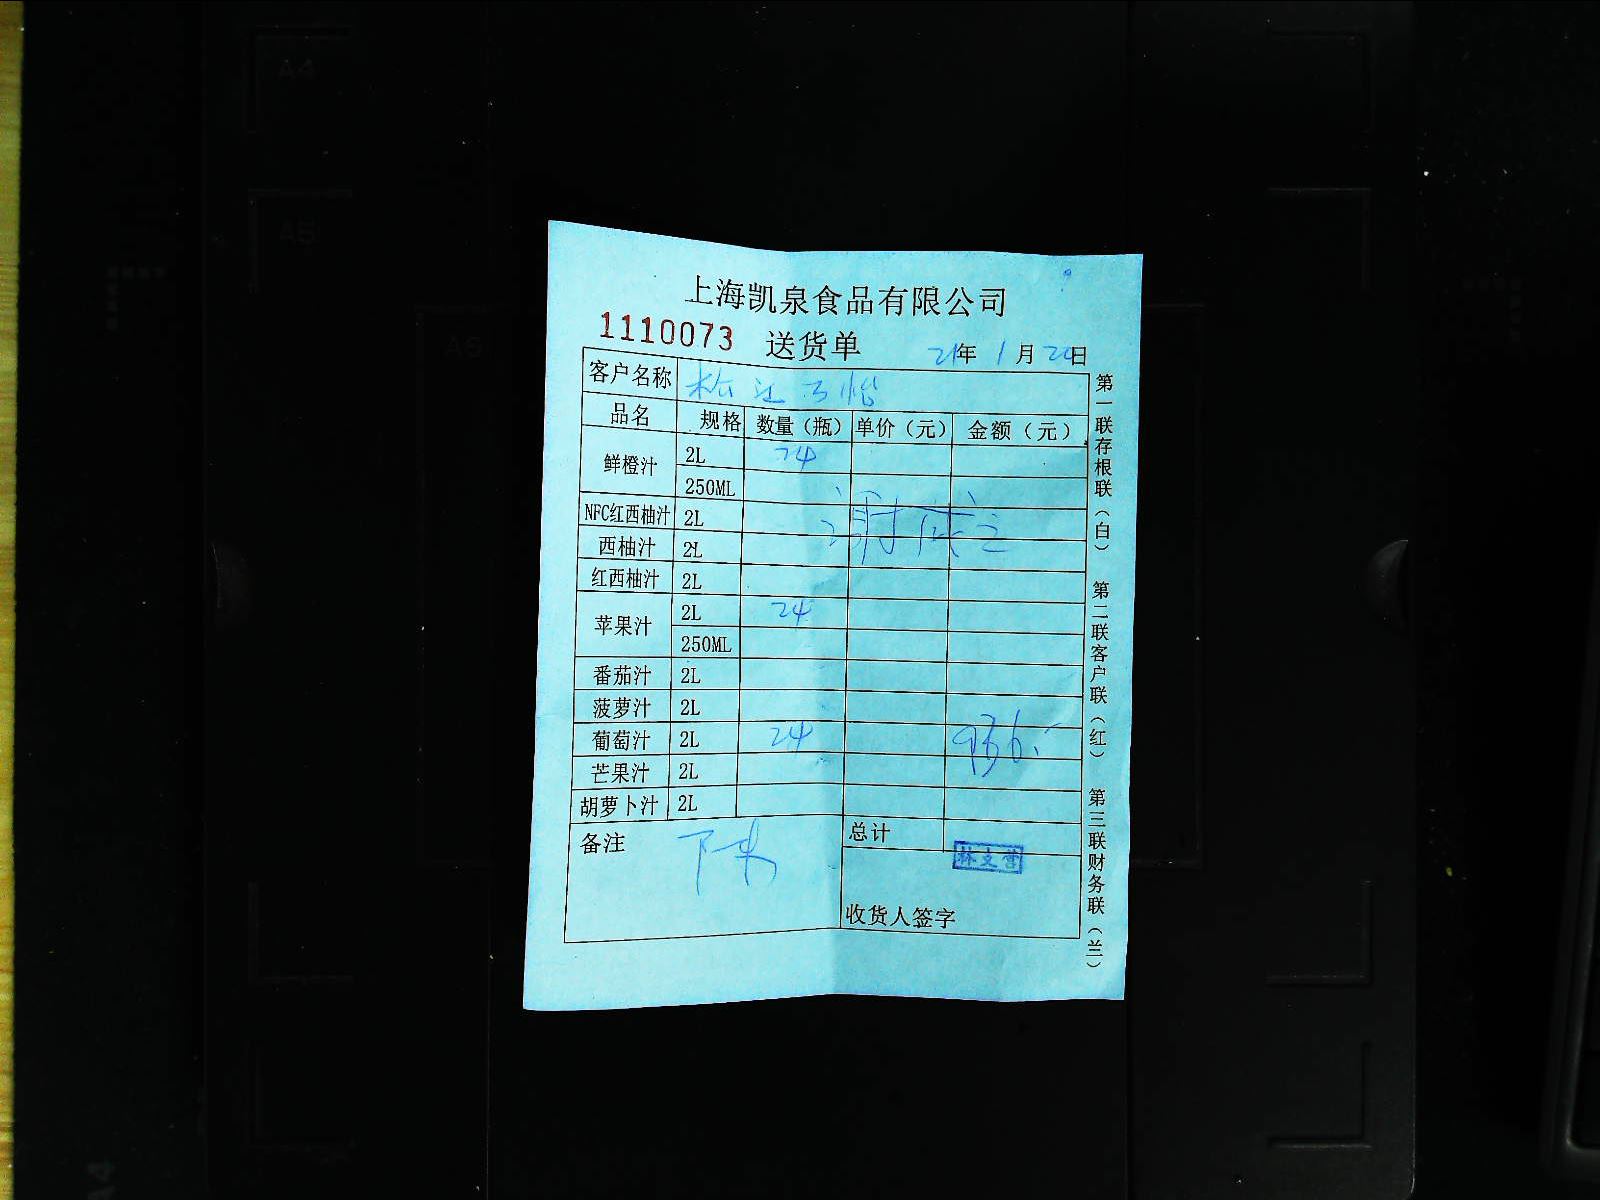 上海凯泉食品有限公司
1110073 送货单 21年1月20日
客户名称 松江万怡
品名 规格 数量（瓶） 单价（元） 金额（元）
鲜橙汁 2L 24
250ML
NFC红西柚汁 2L
西柚汁 2L
红西柚汁 2L
苹果汁 2L 24
250ML
番茄汁 2L
菠萝汁 2L
葡萄汁 2L 24 936
芒果汁 2L
胡萝卜汁 2L
备注
总计
林文营
收货人签字
第一联存根联（白） 第二联客户联（红） 第三联财务联（兰）
A4
A5
A6
A4